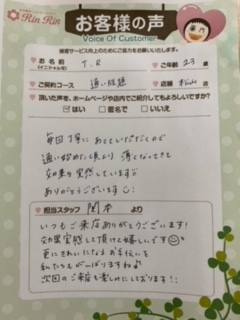 Rin Rin
お客様の声
Voice Of Customer
接客サービス向上のためにご協力をお願いいたします。
お名前
(イニシャル可)
T.R
ご年齢 23歳
ご契約コース
通い放題
店舗 松山
頂いた声を、ホームページや店内でご紹介してもよろしいですか?
☑はい □匿名で □いいえ
毎回丁寧にあてていただくので
通い始めた頃より薄くなってきて
効果を実感しています
ありがとうございます
担当スタッフ 関本 より
いつもご来店ありがとうございます!
効果実感して頂けて嬉しいです
更にきれいになるお手伝いを
私たちもがんばりますね♪
次回のご来店も楽しみにしております!!